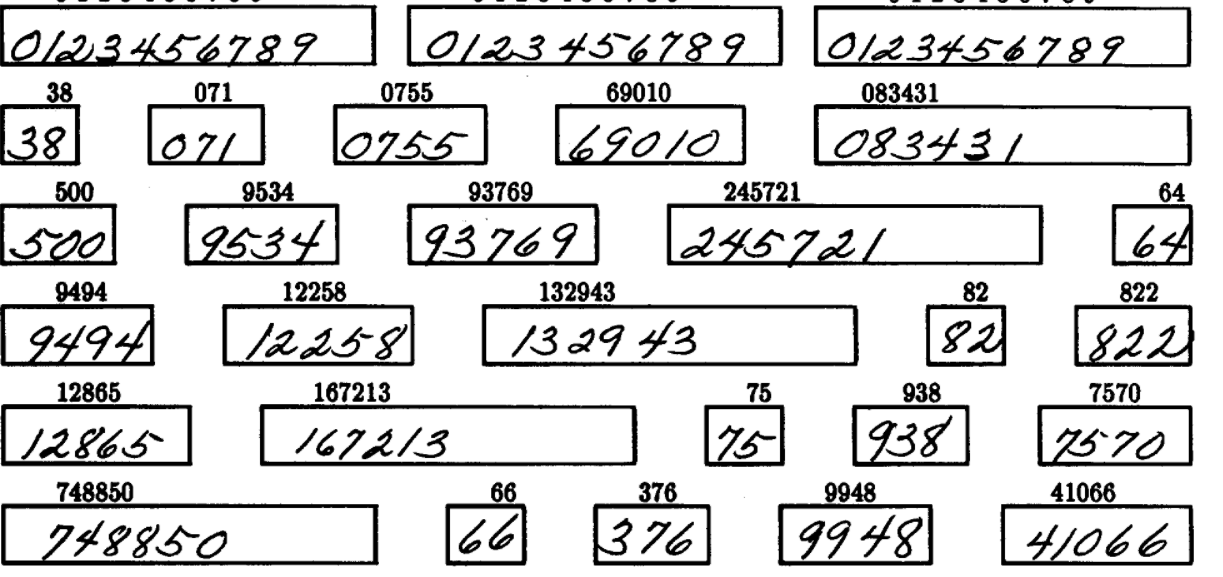 0123456789 0123456789 0123456789
38 071 0755 69010 083431
38 071 0755 69010 083431
500 9534 93769 245721 64
500 9534 93769 245721 64
9494 12258 132943 82 822
9494 12258 132943 82 822
12865 167213 75 938 7570
12865 167213 75 938 7570
748850 66 376 9948 41066
748850 66 376 9948 41066